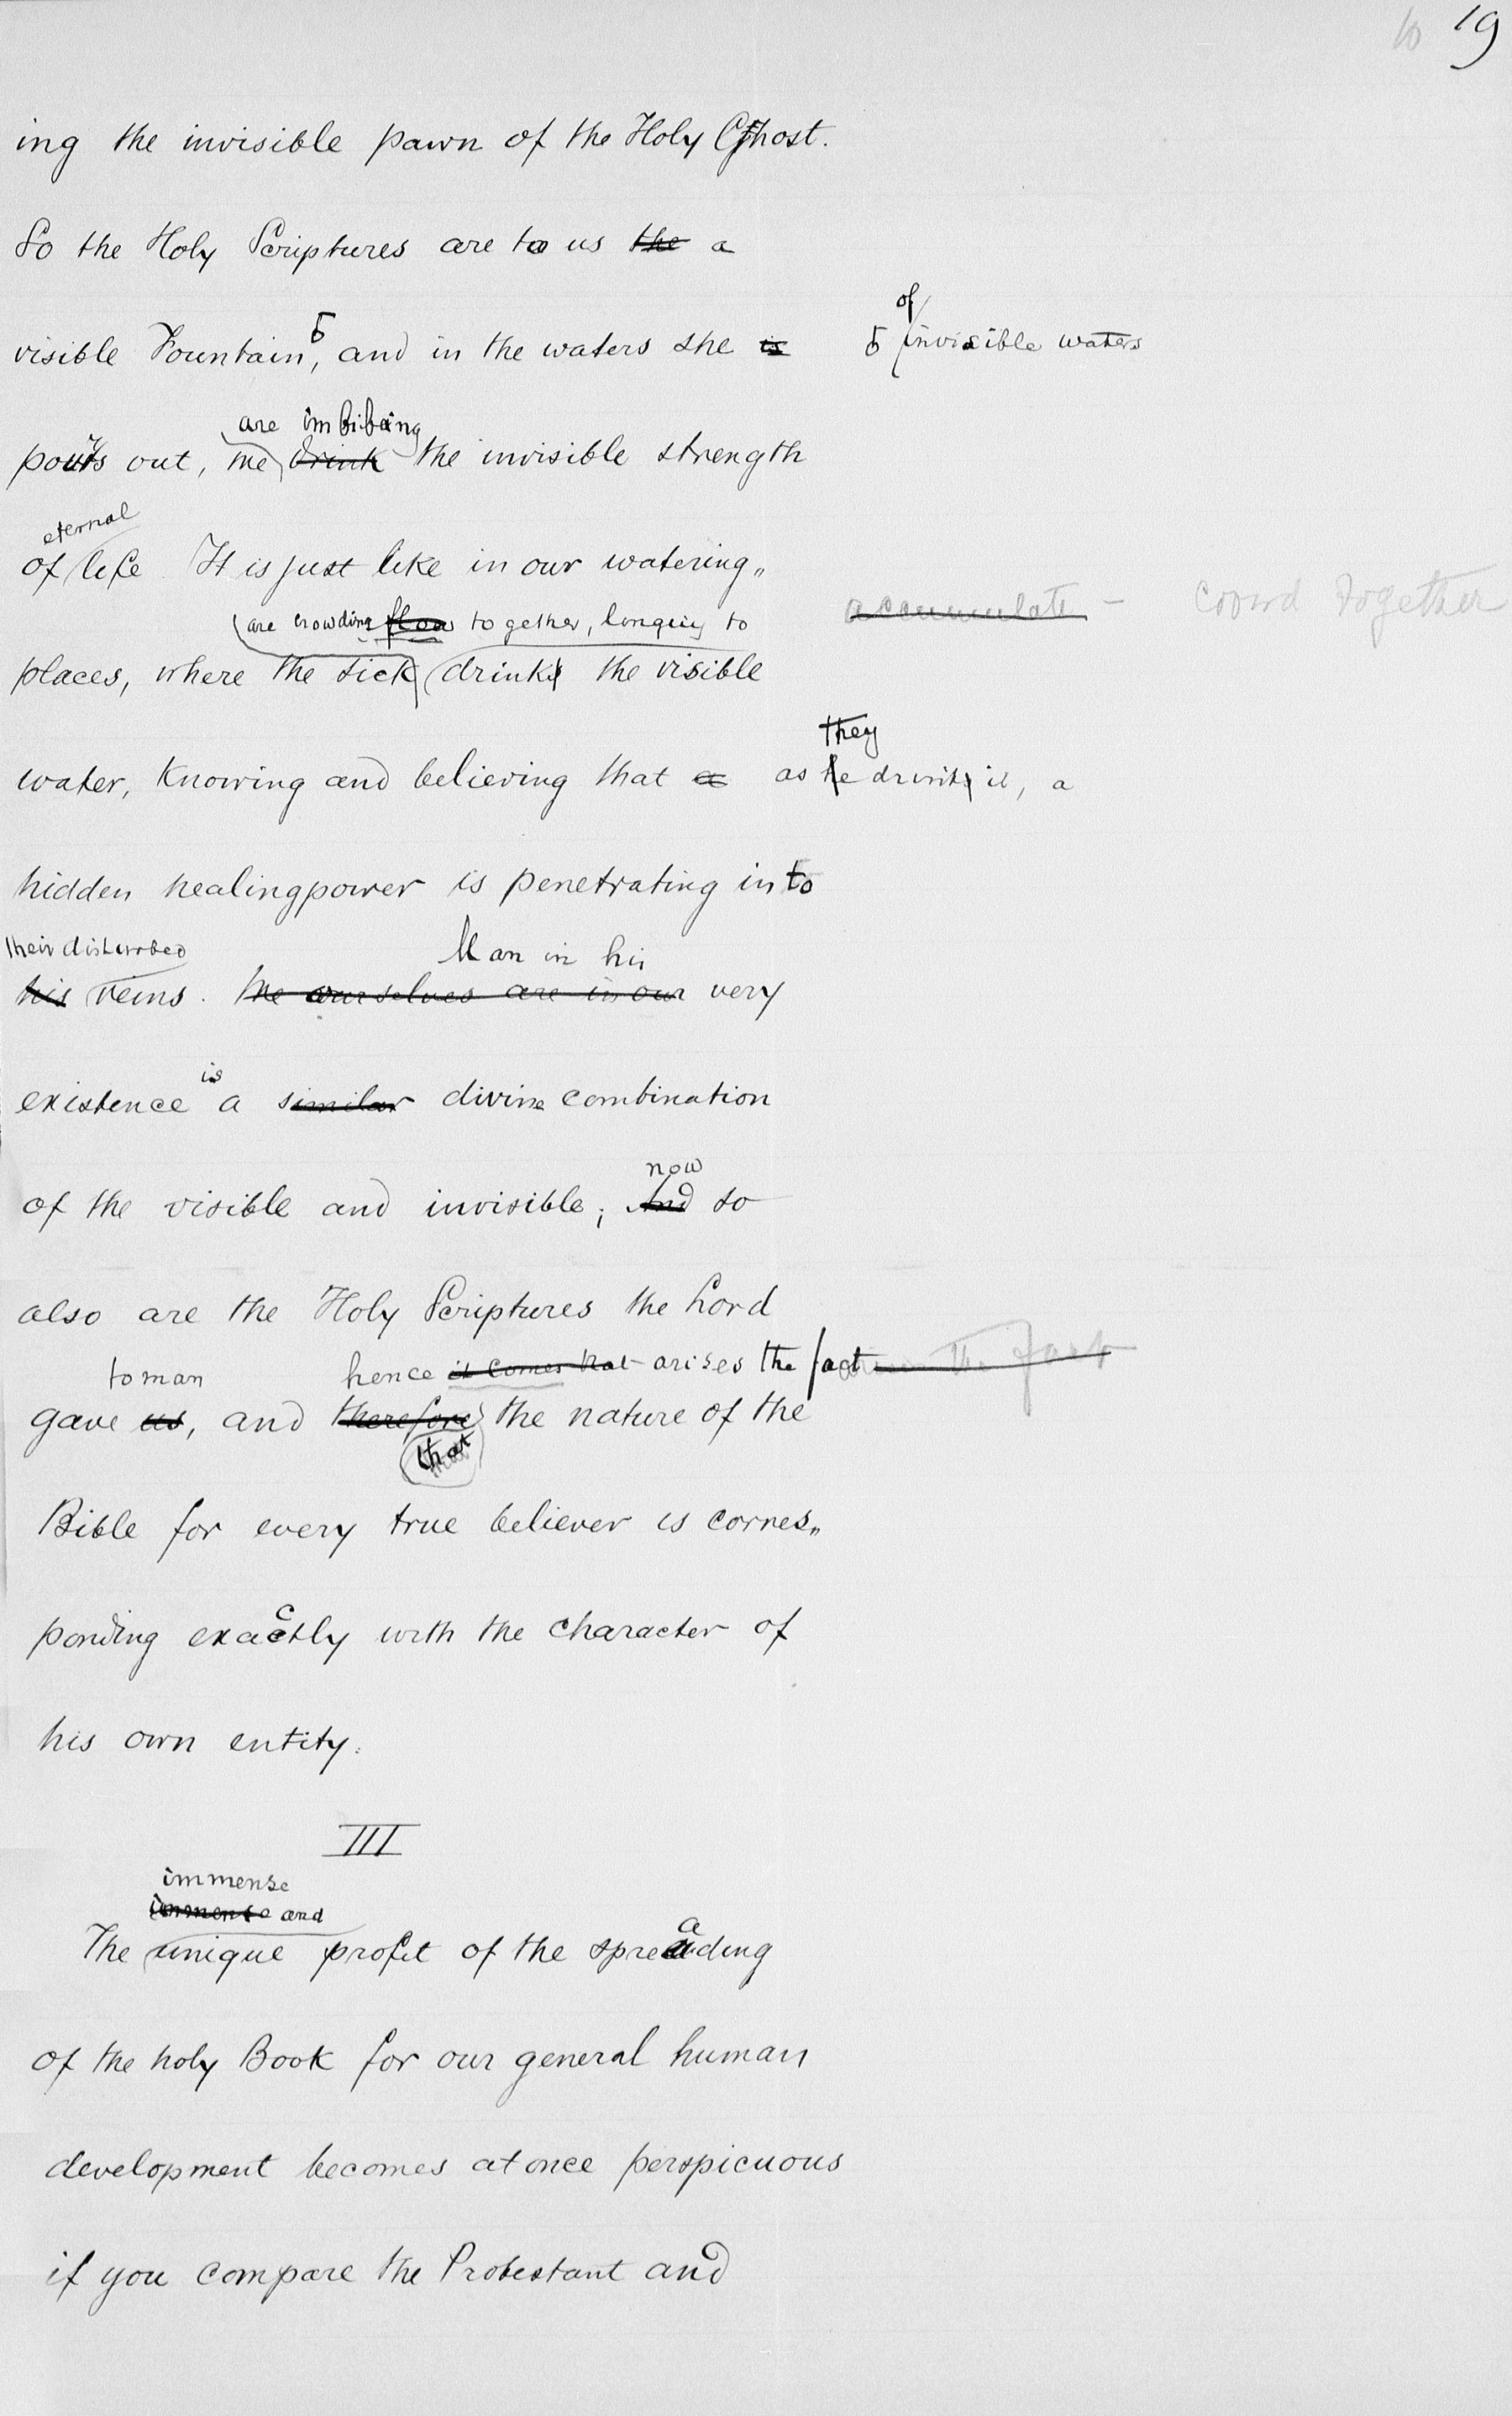 10 19
ing the invisible pawn of the Holy Ghost.
So the Holy Scriptures are to us the a
of
visible Fountain, and in the waters she is invisible waters
are imbibing
pours out, we drink the invisible strength
eternal
of life. It is just like in our watering„
are crowding flow together, longing to accumulate – crowd together
places, where the sick drinks the visible
they
water, knowing and believing that a as he drinks it, a
hidden healingpower is penetrating into
their disturbed Man in his
his veins. We ourselves are in our very
is
existence a similar divine combination
now
of the visible and invisible; And so
also are the Holy Scriptures the Lord
to man hence it comes that arises the fact the fact
gave us, and therefore the nature of the
that
Bible for every true believer is corres„
ponding exactly with the character of
his own entity.
III
immense
immense and
The unique profit of the spreading
of the holy Book for our general human
development becomes at once perspicuous
if you compare the Protestant and